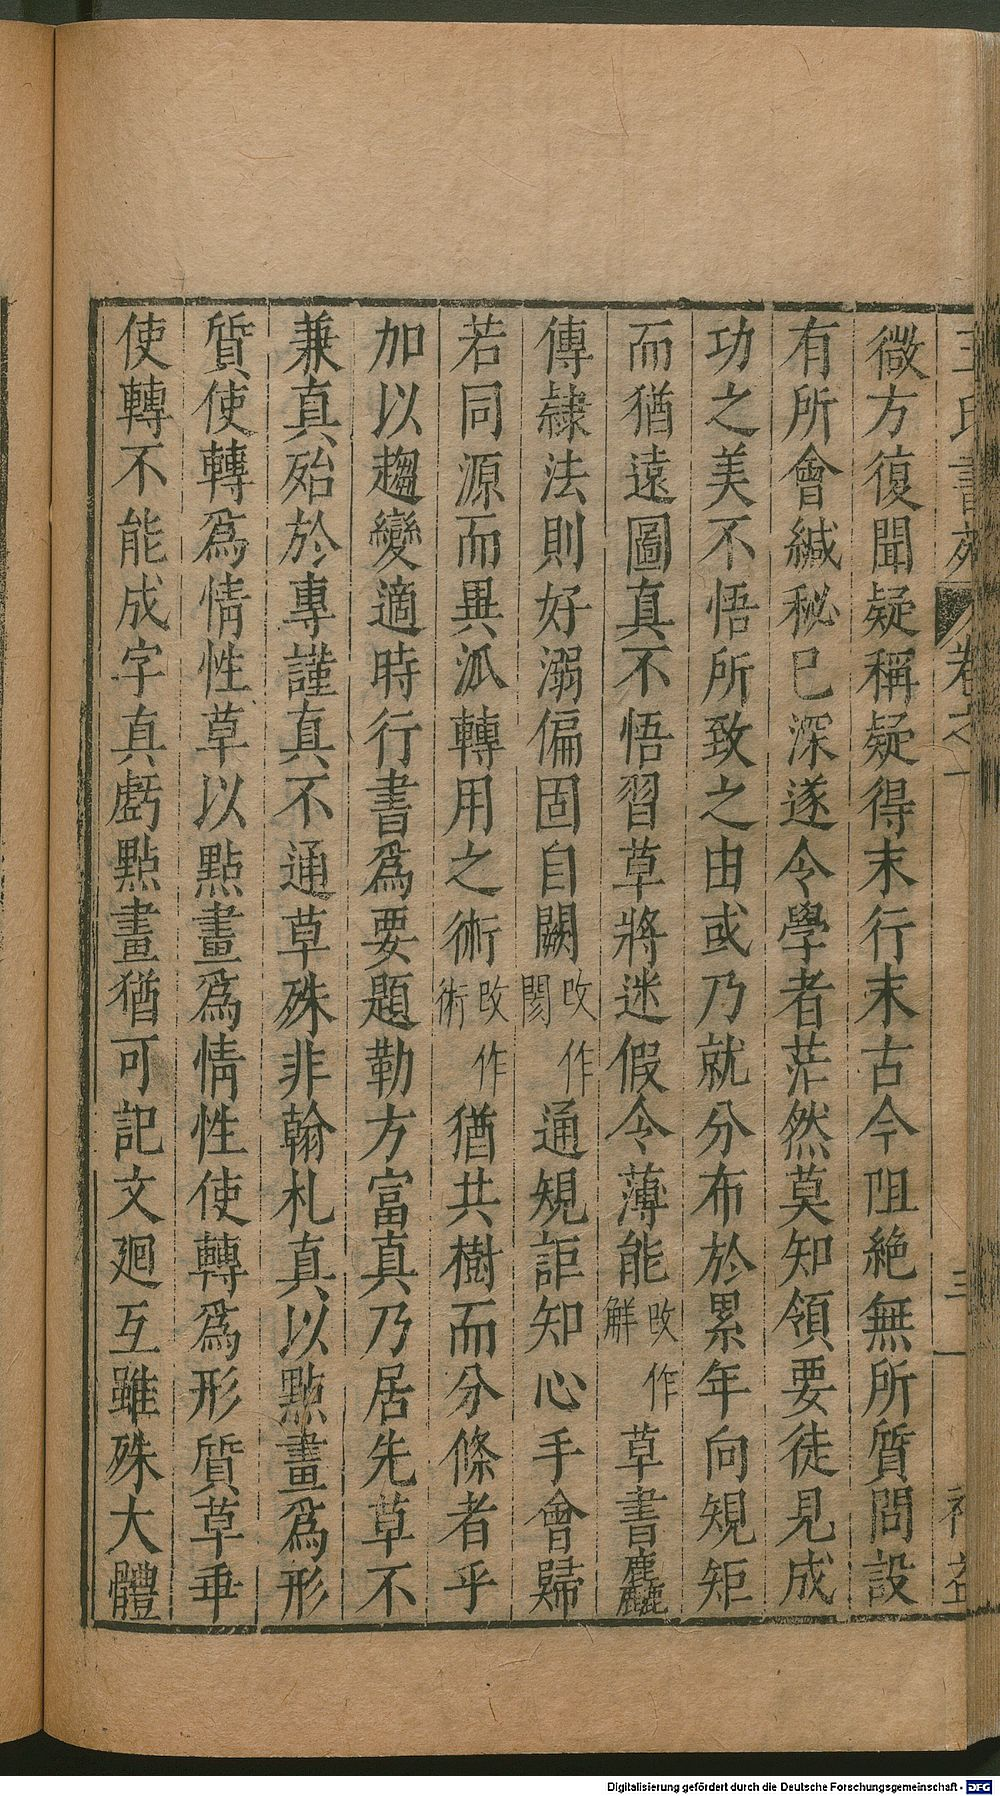 王氏書苑 卷之一 三
微方復聞疑稱疑得末行末古今阻絶無所質問設
有所會緘秘已深遂令學者茫然莫知領要徒見成
功之美不悟所致之由或乃就分布於累年向規矩
而猶遠圖真不悟習草將迷假令薄能改作解草書麤
傳隷法則好溺偏固自闕改作閡通規詎知心手會歸
若同源而異泒轉用之術改作術猶共樹而分條者乎
加以趨變適時行書爲要題勒方富真乃居先草不
兼真殆於專謹真不通草殊非翰札真以點畫爲形
質使轉爲情性草以點畫爲情性使轉爲形質草乖
使轉不能成字真虧點畫猶可記文廻互雖殊大體
Digitalisierung gefördert durch die Deutsche Forschungsgemeinschaft - DFG